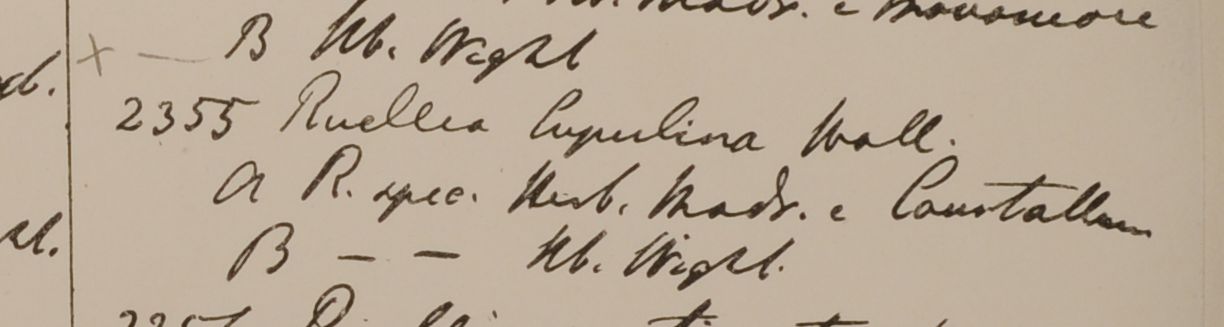 Mads. e
B Hb. Wight
2355 Ruellia Cupulina Wall.
a R. spec. Herb. Mads. e Courtallum
B – – Hb. Wight.